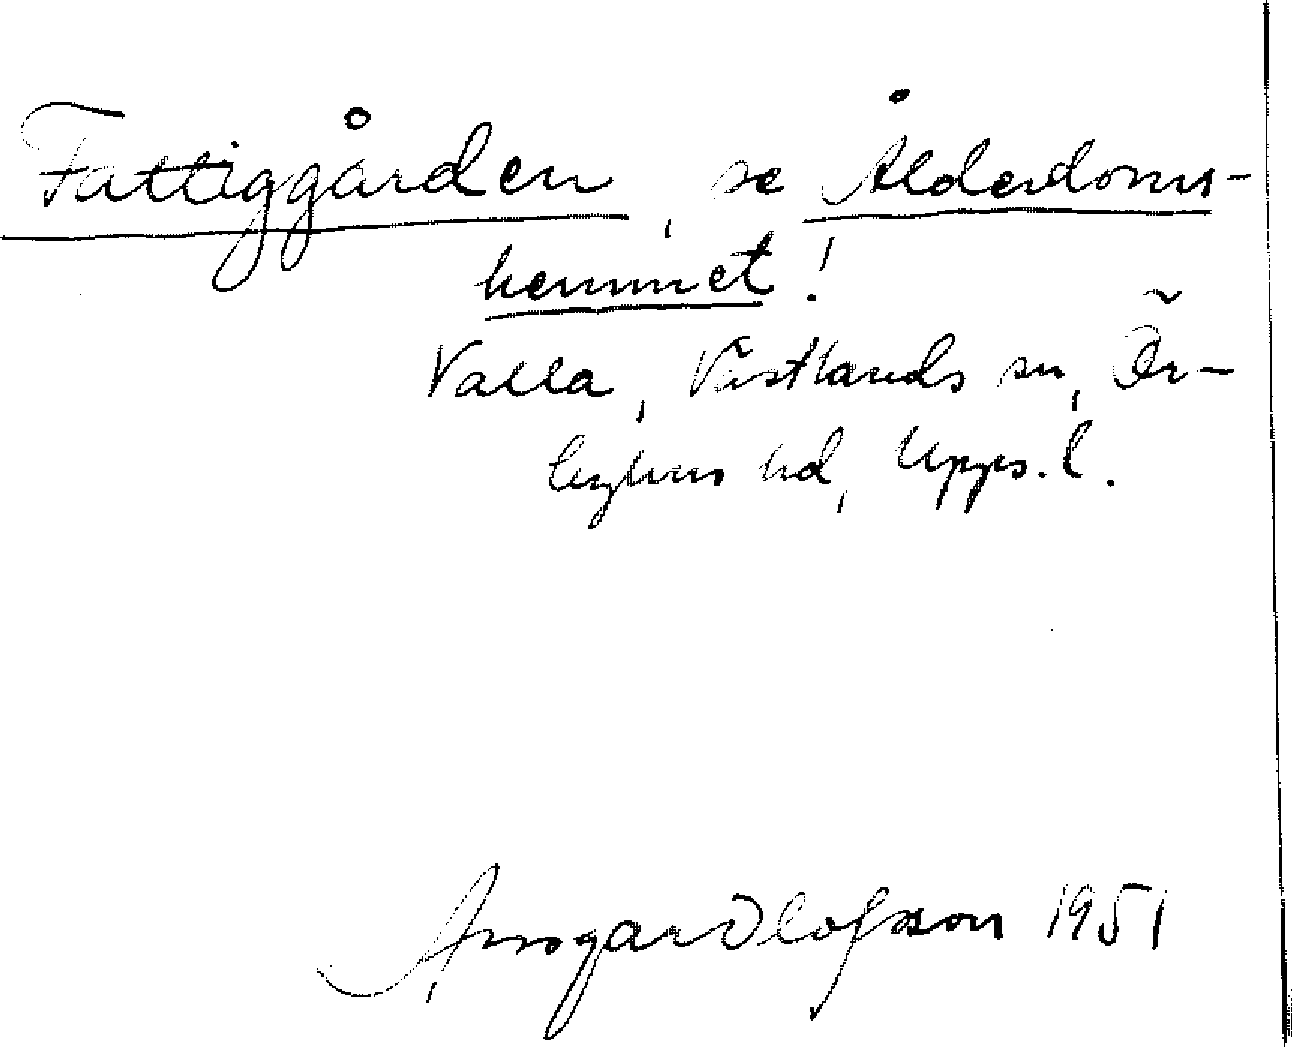 Fattiggården, se Ålderdoms-
hemmet!
Valla, Västlands sn, Ör-
byhus hd, Upps. l.
Ansgar Olofsson 1951